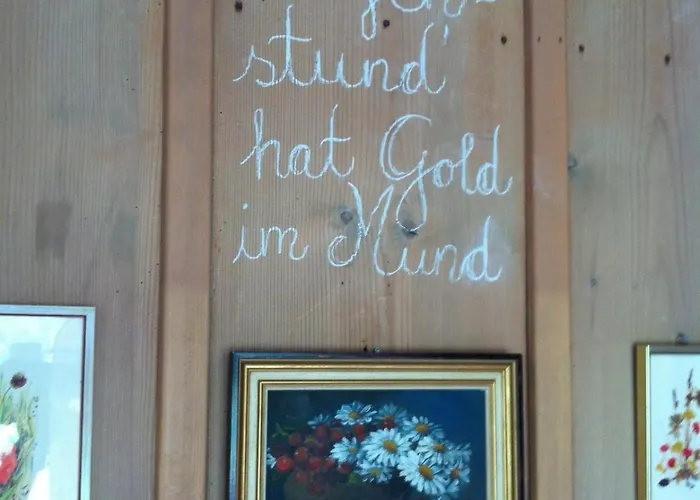 stund'
hat Gold
im Mund